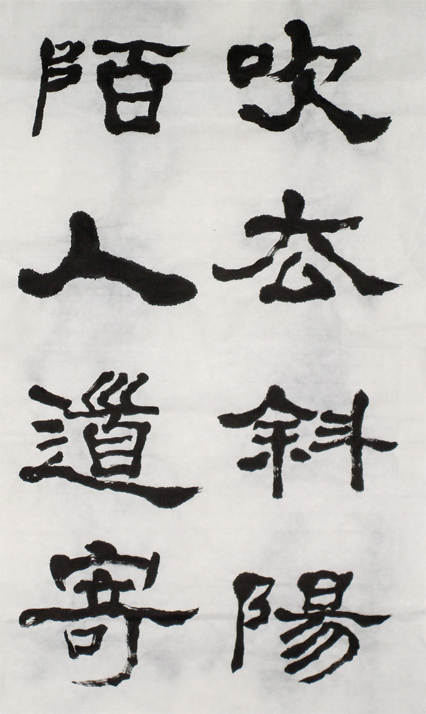 吹去斜陽
陌人道寄